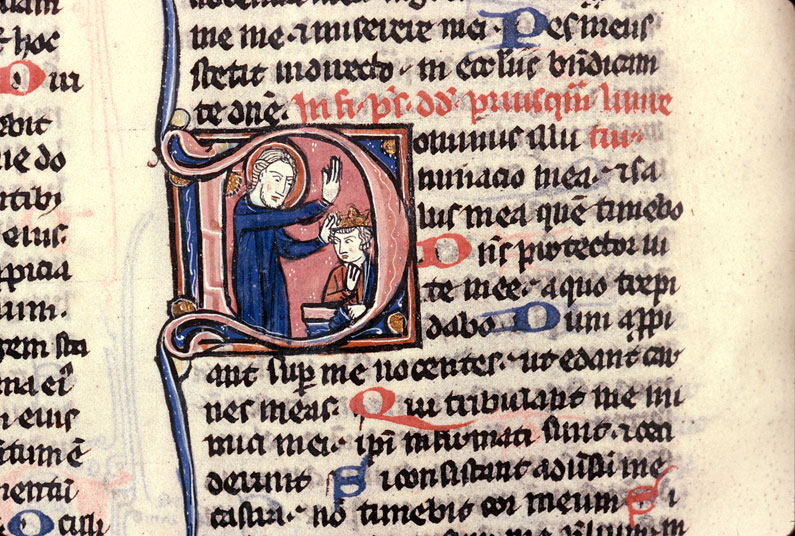 uam
hoc
Qui
ebit
ue do
ntiby
eius.
ppicia
ium.
gem sta
ma ei
n eius
itum ē
mentū
Oculi
me me ⁊ miserere mei Pes meus
stetit in directo in ecclīis bn̄dicam
te dn̄e. In fi. ps. dd. priusqm̄ linire
ominus illu tur
minacio mea ⁊ sa
lus mea quē timebo
Dn̄s protector ui
te mee a quo trepi
dabo Dum appi
ant sup me nocentes ut edant car
nes meas. Qui tribulant me ini
mici mei ipi infirmati sunt ⁊ ceci
derunt Si consistant adūsū me
castra nō timebit cor meum Si